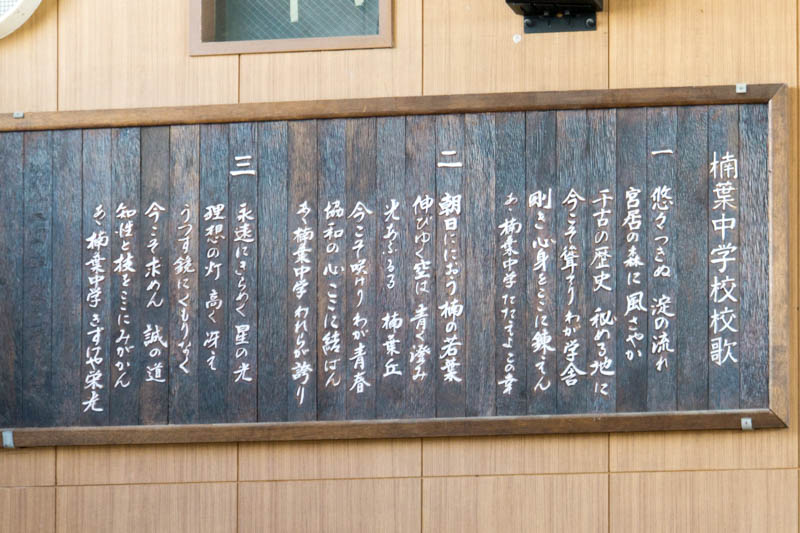 楠葉中学校校歌
一 悠々つきぬ 淀の流れ
宮居の森に 風さやか
千古の歴史 秘める地に
今こそ聳えり わが学舎
剛き心身をここに錬えん
あゝ楠葉中学 たたえよこの幸
二 朝日ににおう 楠の若葉
伸びゆく空は 青く澄み
光あふるる 楠葉丘
今こそ咲けり わが青春
協和の心 ここに結ばん
あゝ楠葉中学 われらが誇り
三 永遠にきらめく 星の光
理想の灯 高く冴え
うつす鏡に くもりなく
今こそ求めん 誠の道
知性と技をここにみがかん
あゝ楠葉中学 きずけや栄光